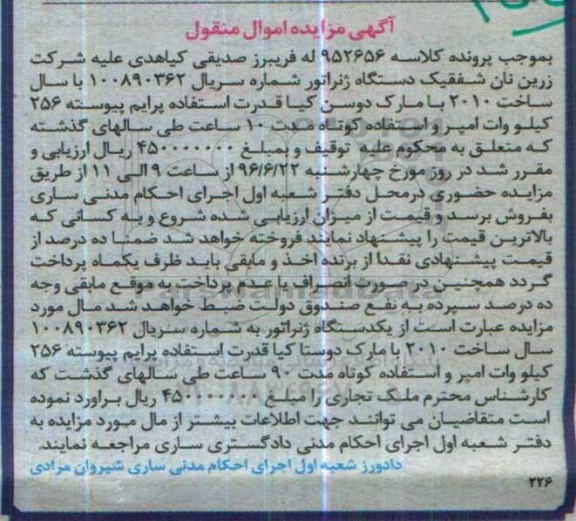 آگهی مزایده اموال منقول
بموجب پرونده کلاسه ۹۵۲۶۵۶ له فریبرز صدیقی کیاهدی علیه شرکت
زرین نان شفقیک دستگاه ژنراتور شماره سریال ۱۰۰۸۹۰۳۶۲ با سال
ساخت ۲۰۱۰ با مارک دوسن کیا قدرت استفاده پرایم پیوسته ۲۵۶
کیلو وات امپر و استفاده کوتاه مدت ۱۰ ساعت طی سالهای گذشته
که متعلق به محکوم علیه توقیف و بمبلغ ۴۵۰۰۰۰۰۰۰ ریال ارزیابی و
مقرر شد در روز مورخ چهارشنبه ۹۶/۶/۲۲ از ساعت ۹ الی ۱۱ از طریق
مزایده حضوری درمحل دفتر شعبه اول اجرای احکام مدنی ساری
بفروش برسد و قیمت از میزان ارزیابی شده شروع و به کسانی که
بالاترین قیمت را پیشنهاد نمایند فروخته خواهد شد ضمنا ده درصد از
قیمت پیشنهادی نقدا از برنده اخذ و مابقی باید ظرف یکماه پرداخت
گردد همچنین در صورت انصراف یا عدم پرداخت به موقع مابقی وجه
ده درصد سپرده به نفع صندوق دولت ضبط خواهد شد مال مورد
مزایده عبارت است از یکدستگاه ژنراتور به شماره سریال ۱۰۰۸۹۰۳۶۲
سال ساخت ۲۰۱۰ با مارک دوستا کیا قدرت استفاده پرایم پیوسته ۲۵۶
کیلو وات امپر و استفاده کوتاه مدت ۹۰ ساعت طی سالهای گذشت که
کارشناس محترم ملک تجاری را مبلغ ۴۵۰۰۰۰۰۰۰ ریال براورد نموده
است متقاضیان می توانند جهت اطلاعات بیشتر از مال مورد مزایده به
دفتر شعبه اول اجرای احکام مدنی دادگستری ساری مراجعه نمایند.
دادورز شعبه اول اجرای احکام مدنی ساری شیروان مرادی
۲۲۶